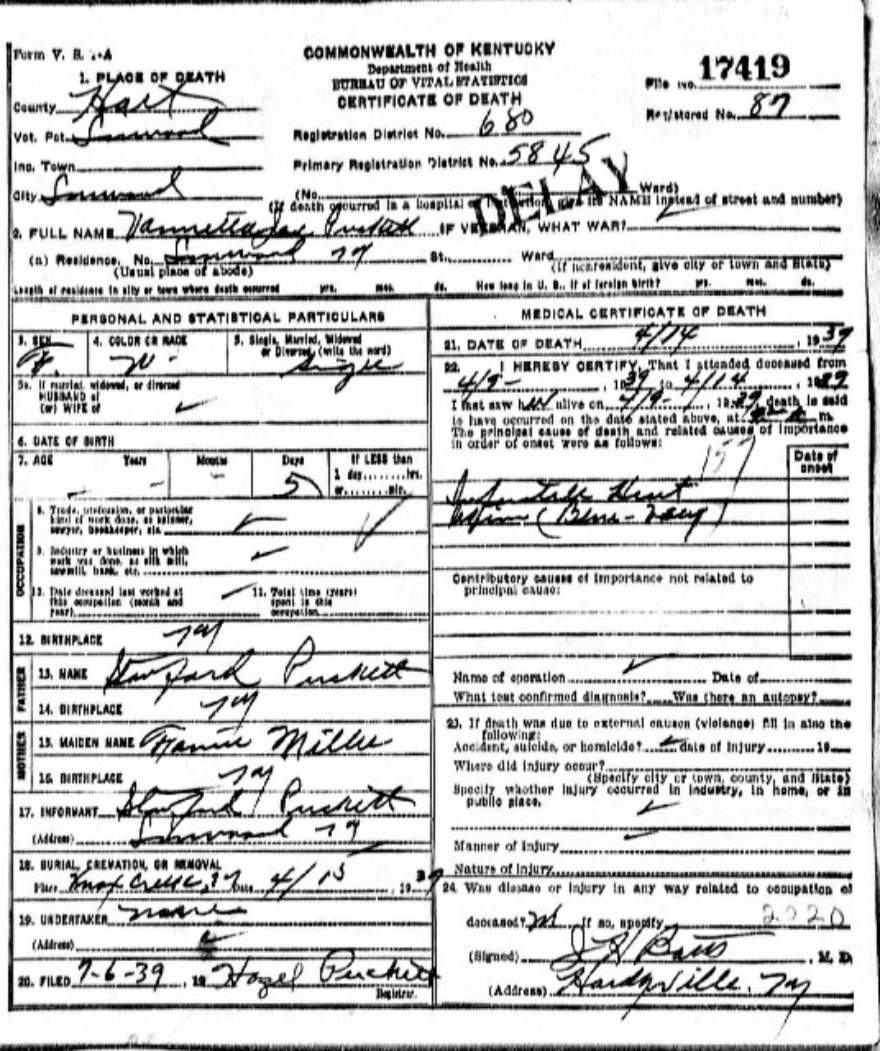 Form V. S. 1-A
COMMONWEALTH OF KENTUCKY
Department of Health
BUREAU OF VITAL STATISTICS
CERTIFICATE OF DEATH
File No. 17419
Registered No. 87
1. PLACE OF DEATH
County Hart
Vot. Pct.
Inc. Town
City
Registration District No. 680
Primary Registration District No. 5845
(No. Ward)
DELAY
(If death occurred in a hospital or institution give its NAME instead of street and number)
2. FULL NAME Puckett IF VETERAN, WHAT WAR?
(a) Residence, No. Ky St., Ward
(Usual place of abode) (If nonresident, give city or town and State)
Length of residence in city or town where death occurred yrs. mos. ds. How long in U. S., if of foreign birth? yrs. mos. ds.
PERSONAL AND STATISTICAL PARTICULARS
3. SEX F.
4. COLOR OR RACE W
5. Single, Married, Widowed or Divorced, (write the word) Single
5a. If married, widowed, or divorced
HUSBAND of
(or) WIFE of
6. DATE OF BIRTH
7. AGE Years Months Days 5 If LESS than
1 day, hrs.
or min.
OCCUPATION
8. Trade, profession, or particular
kind of work done, as spinner,
sawyer, bookkeeper, etc.
9. Industry or business in which
work was done, as silk mill,
sawmill, bank, etc.
10. Date deceased last worked at
this occupation (month and
year)
11. Total time (years)
spent in this
occupation
12. BIRTHPLACE Ky
FATHER
13. NAME Stanford Puckett
14. BIRTHPLACE Ky
MOTHER
15. MAIDEN NAME Fannie Miller
16. BIRTHPLACE Ky
17. INFORMANT Stanford Puckett
(Address) Ky
18. BURIAL, CREMATION, OR REMOVAL
Place Knox Creek, Ky Date 4/15, 1939
19. UNDERTAKER none
(Address)
20. FILED 7-6-39, 19 Hazel Puckett
Registrar.
MEDICAL CERTIFICATE OF DEATH
21. DATE OF DEATH 4/14, 1939
22. I HEREBY CERTIFY, That I attended deceased from
4/9-, 1939 to 4/14, 1939
I last saw her alive on 4/9-, 1939, death is said
to have occurred on the date stated above, at m.
The principal cause of death and related causes of importance
in order of onset were as follows:
Date of
onset
157
Heart
(Blue-Baby)
Contributory causes of importance not related to
principal cause:
Name of operation Date of
What test confirmed diagnosis? Was there an autopsy?
23. If death was due to external causes (violence) fill in also the
following:
Accident, suicide, or homicide? date of injury 19
Where did injury occur?
(Specify city or town, county, and State)
Specify whether injury occurred in industry, in home, or in
public place.
Manner of injury
Nature of injury
24. Was disease or injury in any way related to occupation of
deceased? If so, specify 2320
(Signed) Batts, M. D.
(Address) Hardyville, Ky